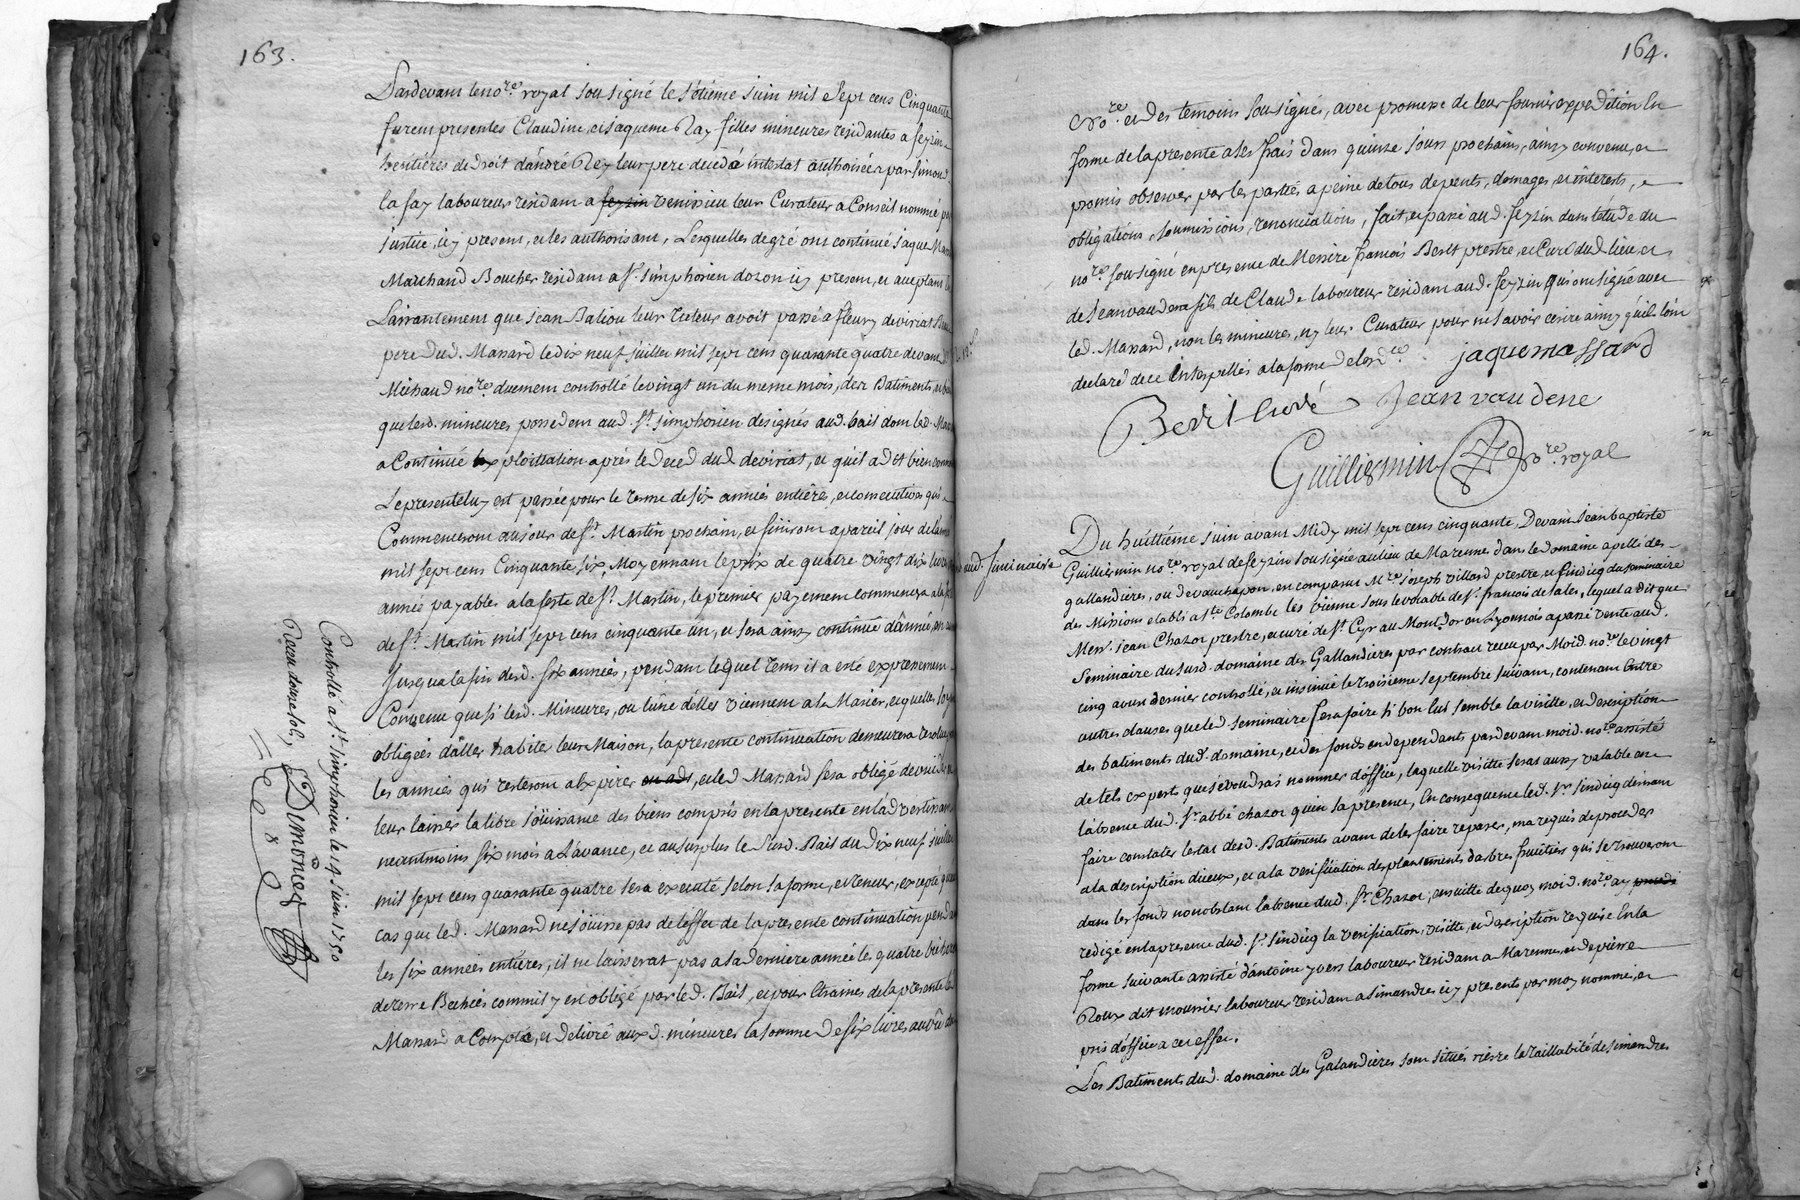 163.
Pardevant le nore. royal sousigné le sétiéme juin mil sept cens cinquante
furent presentes Claudine, et jaqueme Ray filles mineures residantes a feyzin
heritiéres de droit d'andré Rey leur pere decedé intestat authorisées par simond
la fay laboureur residant a feyzin venissieu leur Curateur a Conseil nommé par
justice, icy present, et les authorisant, Lesquelles de gré ont continué a jaque
Marchand Boucher residant a st. simphorien dozon icy present, et acceptant
L'arrantement que jean Baliou leur tuteur avoit passé a fleury deviriat
pere dud. Massard le dix neuf juillet mil sept cens quarante quatre devant
Michaud nore. duement controllé le vingt un du meme mois, des Batiments, et
que lesd. mineures possedent aud. st. simphorien designés aud. bail dont led.
a Continué lexploittation aprés le deced dud. deviriat, et quil a dit bien
Le presente luy est passée pour le terme de six années entiéres, et consecutives qui
Commenceront au jour de st. Martin prochain, et finiront a pareil jour de lannée
mil sept cens Cinquante six, Moyennant le prix de quatre vingt dix livres
année payables a la feste de st. Martin, le premier payement commencera a la
de st. Martin mil sept cens cinquante un, et sera ainsy continué d'année, en
jusqua la fin desd. six années, pendant lequel tems il a esté expressement
Convenu que si lesd. Mineures, ou lune d'elles viennent a se Marier, et quelles soyent
obligées daller habiter leur Maison, la presente continuation demeurera resolue
les années qui resteront a Expirer ou ads, et led. Massard sera obligé de vuider
leur laisser la libre joüissance des biens compris en la presente en ladvertissant
neantmoins six mois a Lavance, et au surplus le susd. Bail du dix neuf juillet
mil sept cens quarante quatre sera executé selon sa forme, et teneur, excepté qu'en
cas que led. Massard ne joüisse pas de leffet de la presente continuation pendant
les six années entiéres, il ne laisserat pas a la derniére année les quatre
de terre Bechées comm'il y est obligé par led. Bail, et pour Etraines de la presente led.
Massard a Compté, et delivré auxd. mineures la somme de six livres au vû du
Controllé a st. simphorien le 14. juin 1750
Reçu douze sols,
164.
Nore. et des temoins sousignés, avec promesse de leur fournir expedition En
forme de la presente a ses frais dans quinze jours prochains, ainsy convenu, et
promis observer par les parties a peine de tous depents, domages, et interests,
obligations, soumissions, renonciations, fait, et passé aud. feyzin dans létude du
nore. sousigné en presence de Messire françois Berlt prestre, et Curé dud. lieu et
de jean vaudene fils de Claude laboureur residant aud. feyzin qui ont signé avec
led. Massard, non les mineures, ny leur Curateur pour ne savoir ecrire ainsy quils l'ont
declaré de ce Enterpellés a la forme de lordce.
jaque massard
Jean vaudene
Guilliermin nore. royal
aud. seminaire
Du huitiéme juin avant Midy mil sept cens cinquante, Devant jean baptiste
Guilliermin nore. royal de feyzin sousigné au lieu de Marennes dans le domaine apellé des
gallandiéres, ou devauchapon, en comparu Mre. joseph villard prestre, et sindicq du seminaire
des Missions etabli a ste. Colombe les vienne sous le vocable de st. françois de sales, lequel a dit que
Messr. jean Chazot prestre, et curé de st. Cyr au Mont-dor en Lyonnois a passé vente aud.
seminaire du susd. domaine des Gallandiéres par contrau receu par Moid. nore. le vingt
cinq aoust dernier controllé, et insinué le troisieme septembre suivant, contenant Entre
autres clauses que led. seminaire fera faire si bon lui semble la visitte, et description
des batiments dud. domaine, et des fonds en dependants pardevant moid. nore. assisté
de tels experts que je voudrais nommer d'office, laquelle visitte seras aussy valable en
l'absence dud. sr. abbé chazot quen sa presence, En consequence led. sr. sindicq desirant
faire constater lestat desd. Batiments avant de les faire reparer, ma requis de proceder
a la description diceux, et a la verification des plantements darbres fruitiers qui se trouveront
dans les fonds nonobstant labsence dud. sr. Chazot, ensuitte de quoy moid. nore. ay
redigé en la presence dud. sr. sindicq la verification, visitte, et description requise En la
forme suivante assisté d'antoine yvers laboureur residant a Marenne, et de pierre
Roux dit mournier laboureur residant a simandres icy presents par moy nommés, et
pris d'office a cet effet.
Les Batiments dud. domaine des Galandiéres sont situés riére le taillabité de simandres